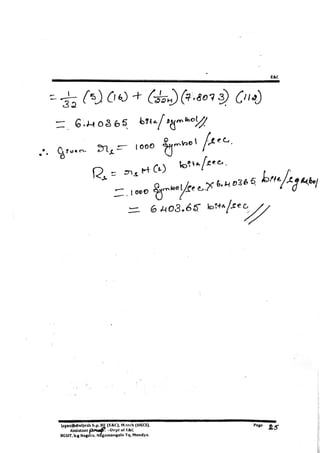 E&C
= 1/32 (5) (16) + (1/224) (7.8073) (112)
= 6.40365 bits/symbol//
∴ Given r_s = 1000 symbol/sec.
R_s = r_s H(s) bits/sec.
= 1000 symbol/sec × 6.40365 bits/symbol
= 6403.65 bits/sec //
Assistant Prof. - Dept of E&C
BGSIT, b.g Nagara, Nagamangala Tq, Mandya.
Page 25